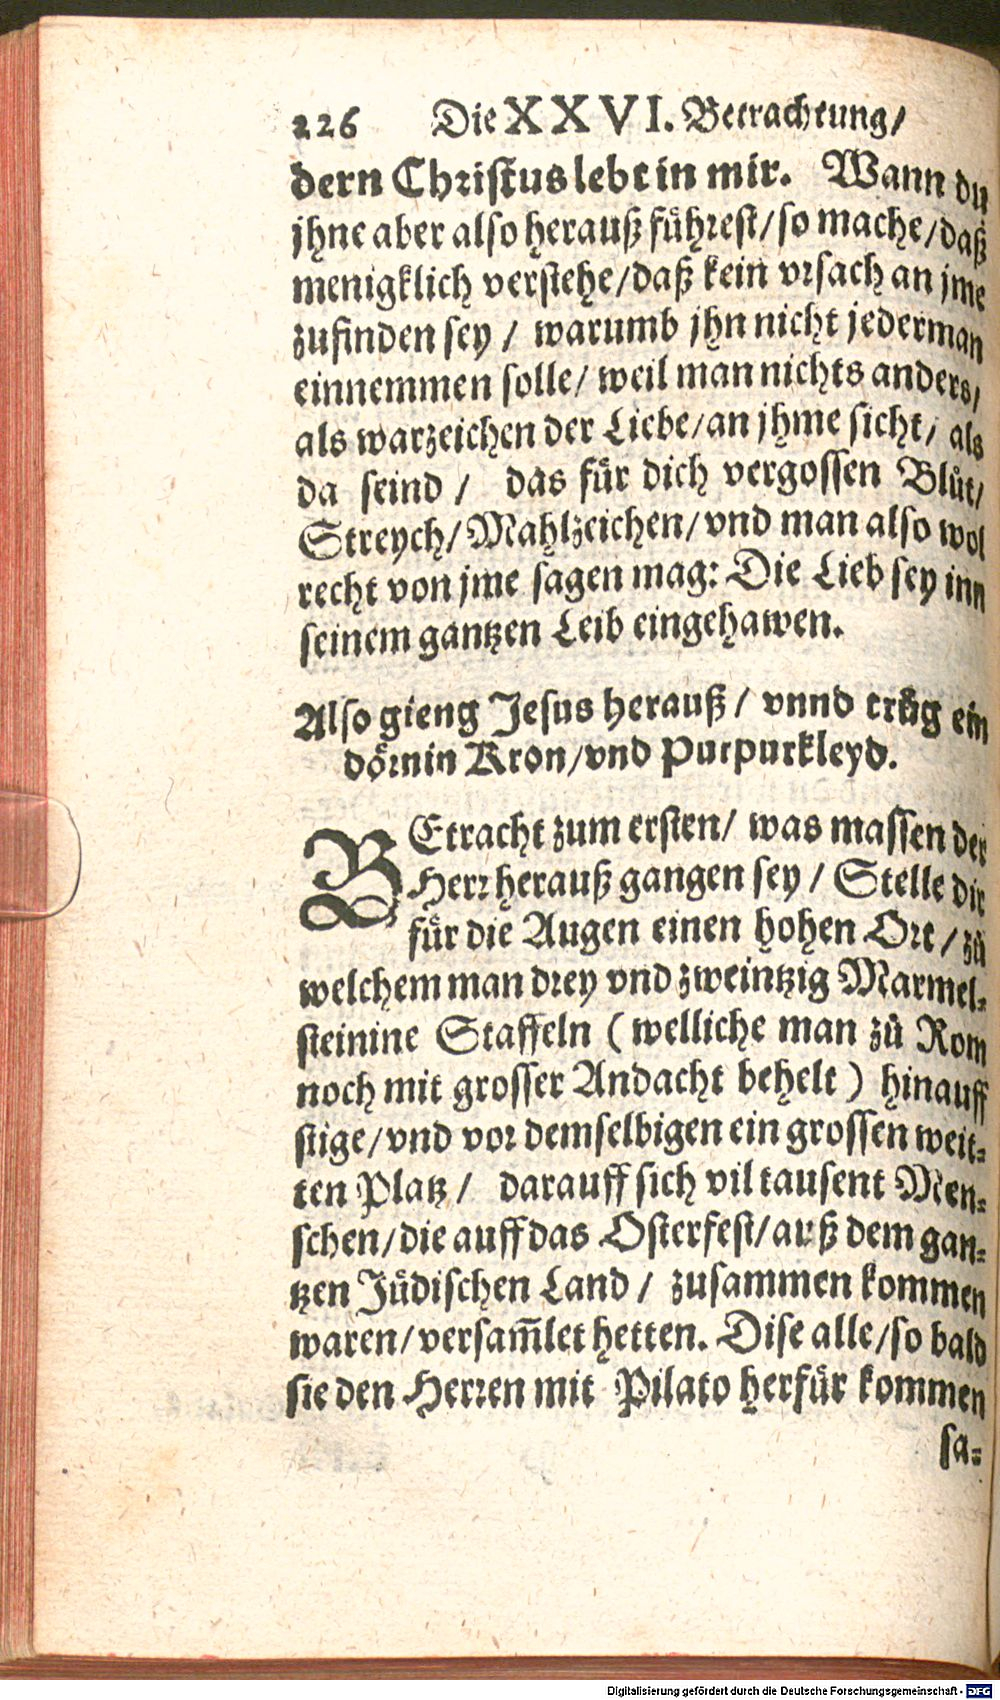 226 Die XXVI. Betrachtung/
dern Christus lebt in mir. Wann du
jhne aber also herauß fuͤhrest/so mache/daß
menigklich verstehe/daß kein vrsach an jme
zufinden sey / warumb jhn nicht jederman
einnemmen solle/ weil man nichts anders,
als warzeichen der Liebe/an jhme sicht/ als
da seind / das fuͤr dich vergossen Bluͦt/
Streych/Mahlzeichen/vnd man also wol
recht von jme sagen mag: Die Lieb sey inn
seinem gantzen Leib eingehawen.
Also gieng Jesus herauß/ vnnd truͦg ein
doͤrnin Kron/vnd Purpurkleyd.
BEtracht zum ersten/ was massen der
Herr herauß gangen sey / Stelle dir
fuͤr die Augen einen hohen Ort / zuͦ
welchem man drey vnd zweintzig Marmel⸗
steinine Staffeln ( welliche man zuͦ Rom
noch mit grosser Andacht behelt ) hinauff
stige/vnd vor demselbigen ein grossen weit⸗
ten Platz / darauff sich vil tausent Men⸗
schen/die auff das Osterfest/auß dem gan⸗
tzen Juͤdischen Land / zusammen kommen
waren/versam̃let hetten. Dise alle/so bald
sie den Herren mit Pilato herfuͤr kommen
sa⸗
Digitalisierung gefördert durch die Deutsche Forschungsgemeinschaft - DFG